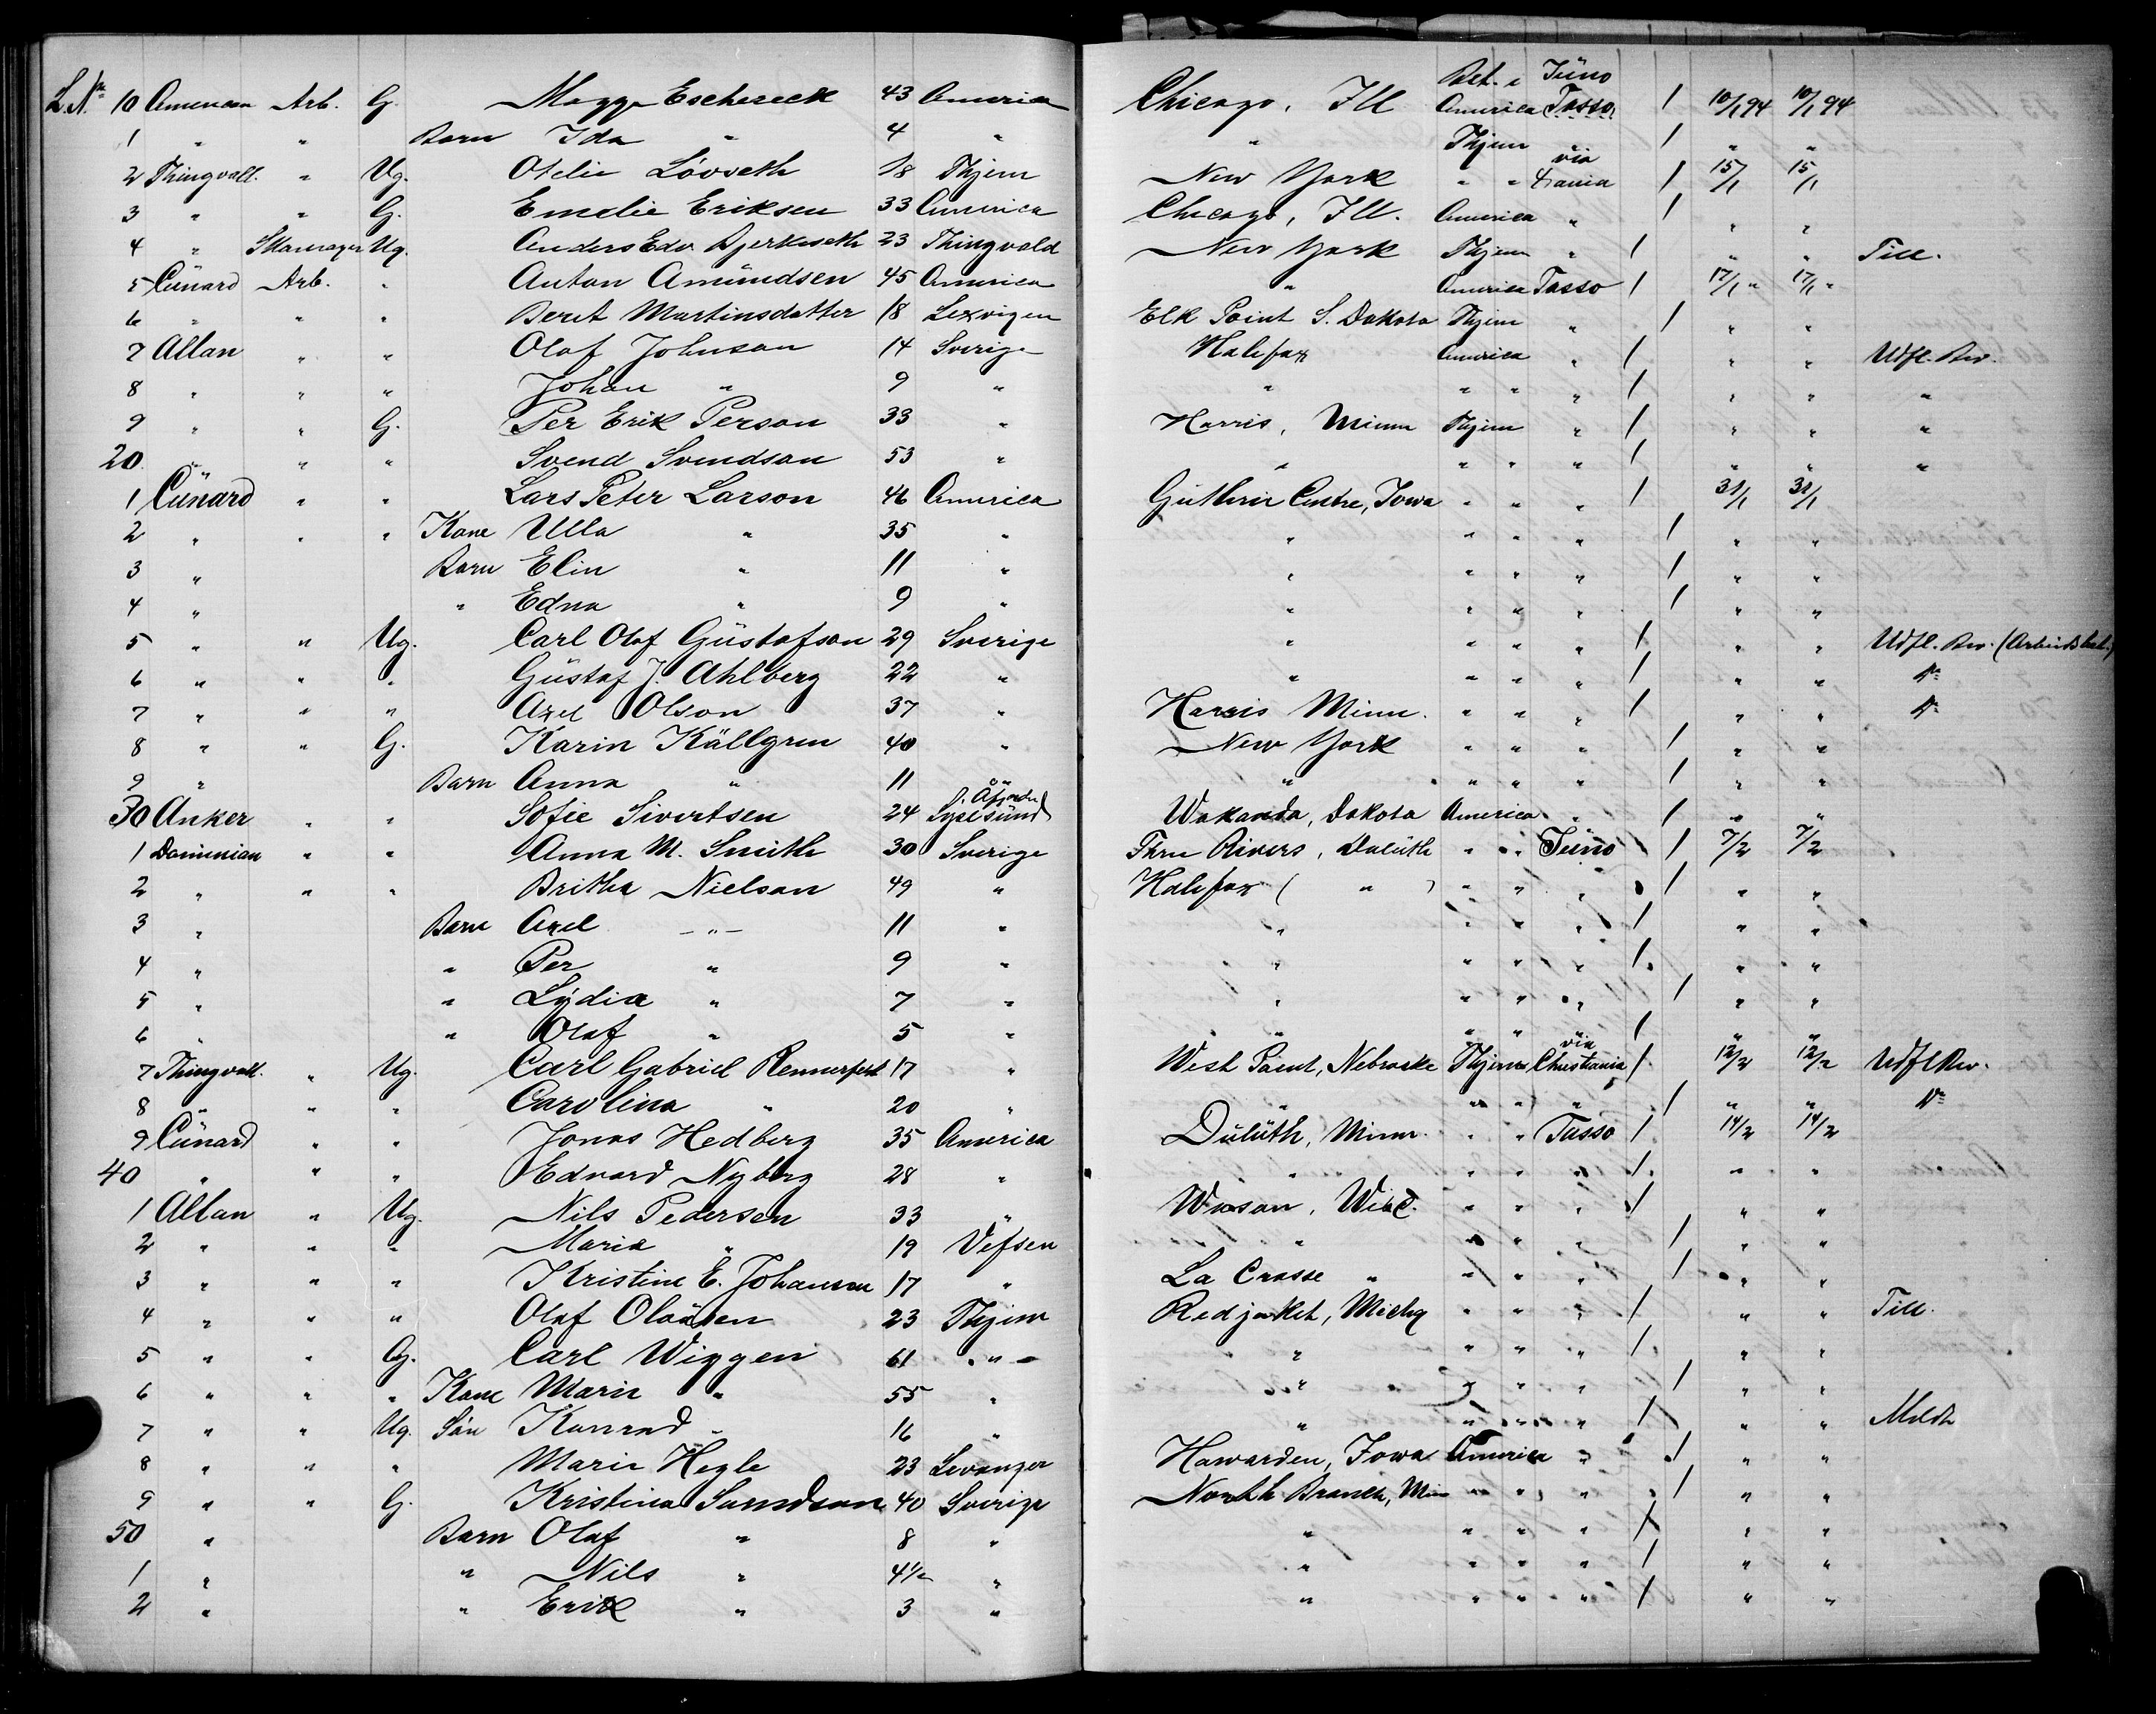 Bet. i Juno
L. Nr 10 American Arb. G. Magge Eschereck 43 America Chicago, Ill America Tasso 1 10/1 94 10/1 94
1 " " Barn Ida " 4 " " Thjem 1 " "
2 Thingvall. " Ug. Otelie Lövseth 18 Thjem New York " " via Xania 1 15/1 15/1
3 " " G. Emelie Eriksen 33 America Chicago, Ill. America " 1 " "
4 " Skomager Ug. Anders Edv. Bjerkeseth 23 Thingvold New York Thjem " 1 " " Till.
5 Cünard Arb. " Anton Amündsen 45 America " America Tasso 1 17/1 " 17/1 "
6 " " " Beret Martinsdatter 18 Lexvigen Elk Point S. Dakota Thjem " 1 " "
7 Allan " " Olof Johnson 14 Sverige Halifax America " 1 " " Udfl. Bev.
8 " " " Johan " 9 " " " " " 1 " " "
9 " " G. Per Erik Person 33 " Harris, Minn Thjem " 1 " " "
20 " " " Svend Svendson 53 " " " " " 1 " " "
1 Cünard " " Lars Peter Larson 46 America Güthrie Centre, Iowa " " " 1 31/1 31/1
2 " " " Kone Ulla " 35 " " " " " 1 " "
3 " Barn Elin " 11 " " " " " 1 " "
4 " " Edna " 9 " " " " " 1 " "
5 " " Ug. Carl Olof Güstafson 29 Sverige " " " " 1 " " Udfl. Bev. (Arbeidsbet.)
6 " " " Güstaf J. Ahlberg 22 " " " " " 1 " " Do
7 " " " Axel Olson 37 " Harris Minn. " " " 1 " " Do
8 " " G. Karin Källgren 40 " New York " " " 1 " "
9 " Barn Anna " 11 " " " " " 1 " "
30 Anker " " Sofie Sivertsen 24 Åfjorden Wakanda, Dakota America " 1 " "
1 Dominian " " Anna M. Smith 30 Sverige Three Rivers, Dulüth " " Jüno 1 7/2 7/2
2 " " " Britha Nielson 49 " Halifax ( " ) " " " 1 " "
3 " Barn Axel " 11 " " " " " 1 " "
4 " " Per " 9 " " " " " 1 " "
5 " " Lydia " 7 " " " " " 1 " "
6 " " Olof " 5 " " " 1 " "
7 Thingvall. " Ug. Carl Gabriel Rennerfelt 17 " West Point, Nebraska Thjem via Christiania 1 12/2 12/2 Udfl Bev.
8 " " " Carolina " 20 " " " " 1 " " Do
9 Cünard " " Jonas Hedberg 35 America Dülüth, Minn. " " Tasso 1 14/2 14/2
40 " " " Edvard Nyberg 28 " " " " " 1 " "
1 Allan " Ug. Nils Pedersen 33 " Wausau, Wisc. " " " 1 " "
2 " " " Maria " 19 Vefsen " " " " 1 " "
3 " " " Kristine E. Johansen 17 " La Crosse " " " " 1 " "
4 " " " Olaf Olausen 23 Thjem Redjacket, Michg " " " 1 " " Till.
5 " " G. Carl Wiggen 61 " " " " " 1 " "
6 " " " Kone Marie " 55 " " " " " 1 " "
7 " " Ug. Sön Konrad " 16 " " " " " 1 " " Meldt
8 " " " Marie Hegle 23 Levanger Hawarden, Iowa America " 1 " "
9 " " G. Kristina Samdson 40 Sverige North Branch, Min " " " 1 " "
50 " Barn Olof " 8 " " " " " 1 " "
1 " " Nils " 4½ " " " " " 1 " "
2 " " Erik " 3 " " " " " 1 " "